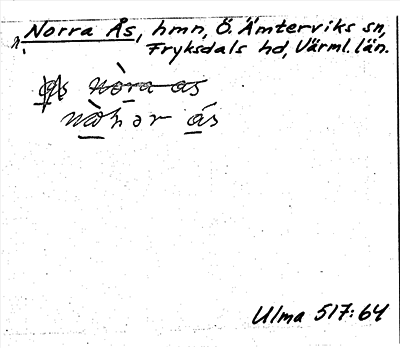 Norra Ås, hmn, Ö. Ämterviks sn,
Fryksdals hd, Värml. län.
nòra as
nòhər ás
Ulma 517:64